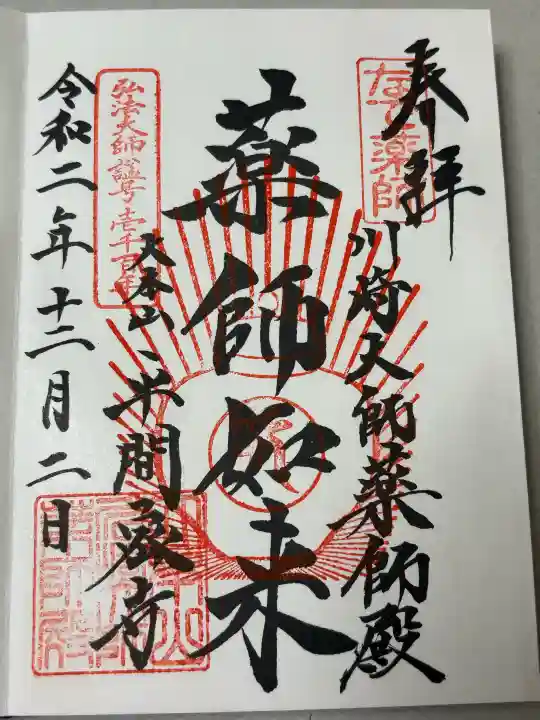 奉拝
なで薬師
川崎大師薬師殿
薬師如来
大本山 平間寺
弘法大師諡号壱千百年
令和二年十二月二日